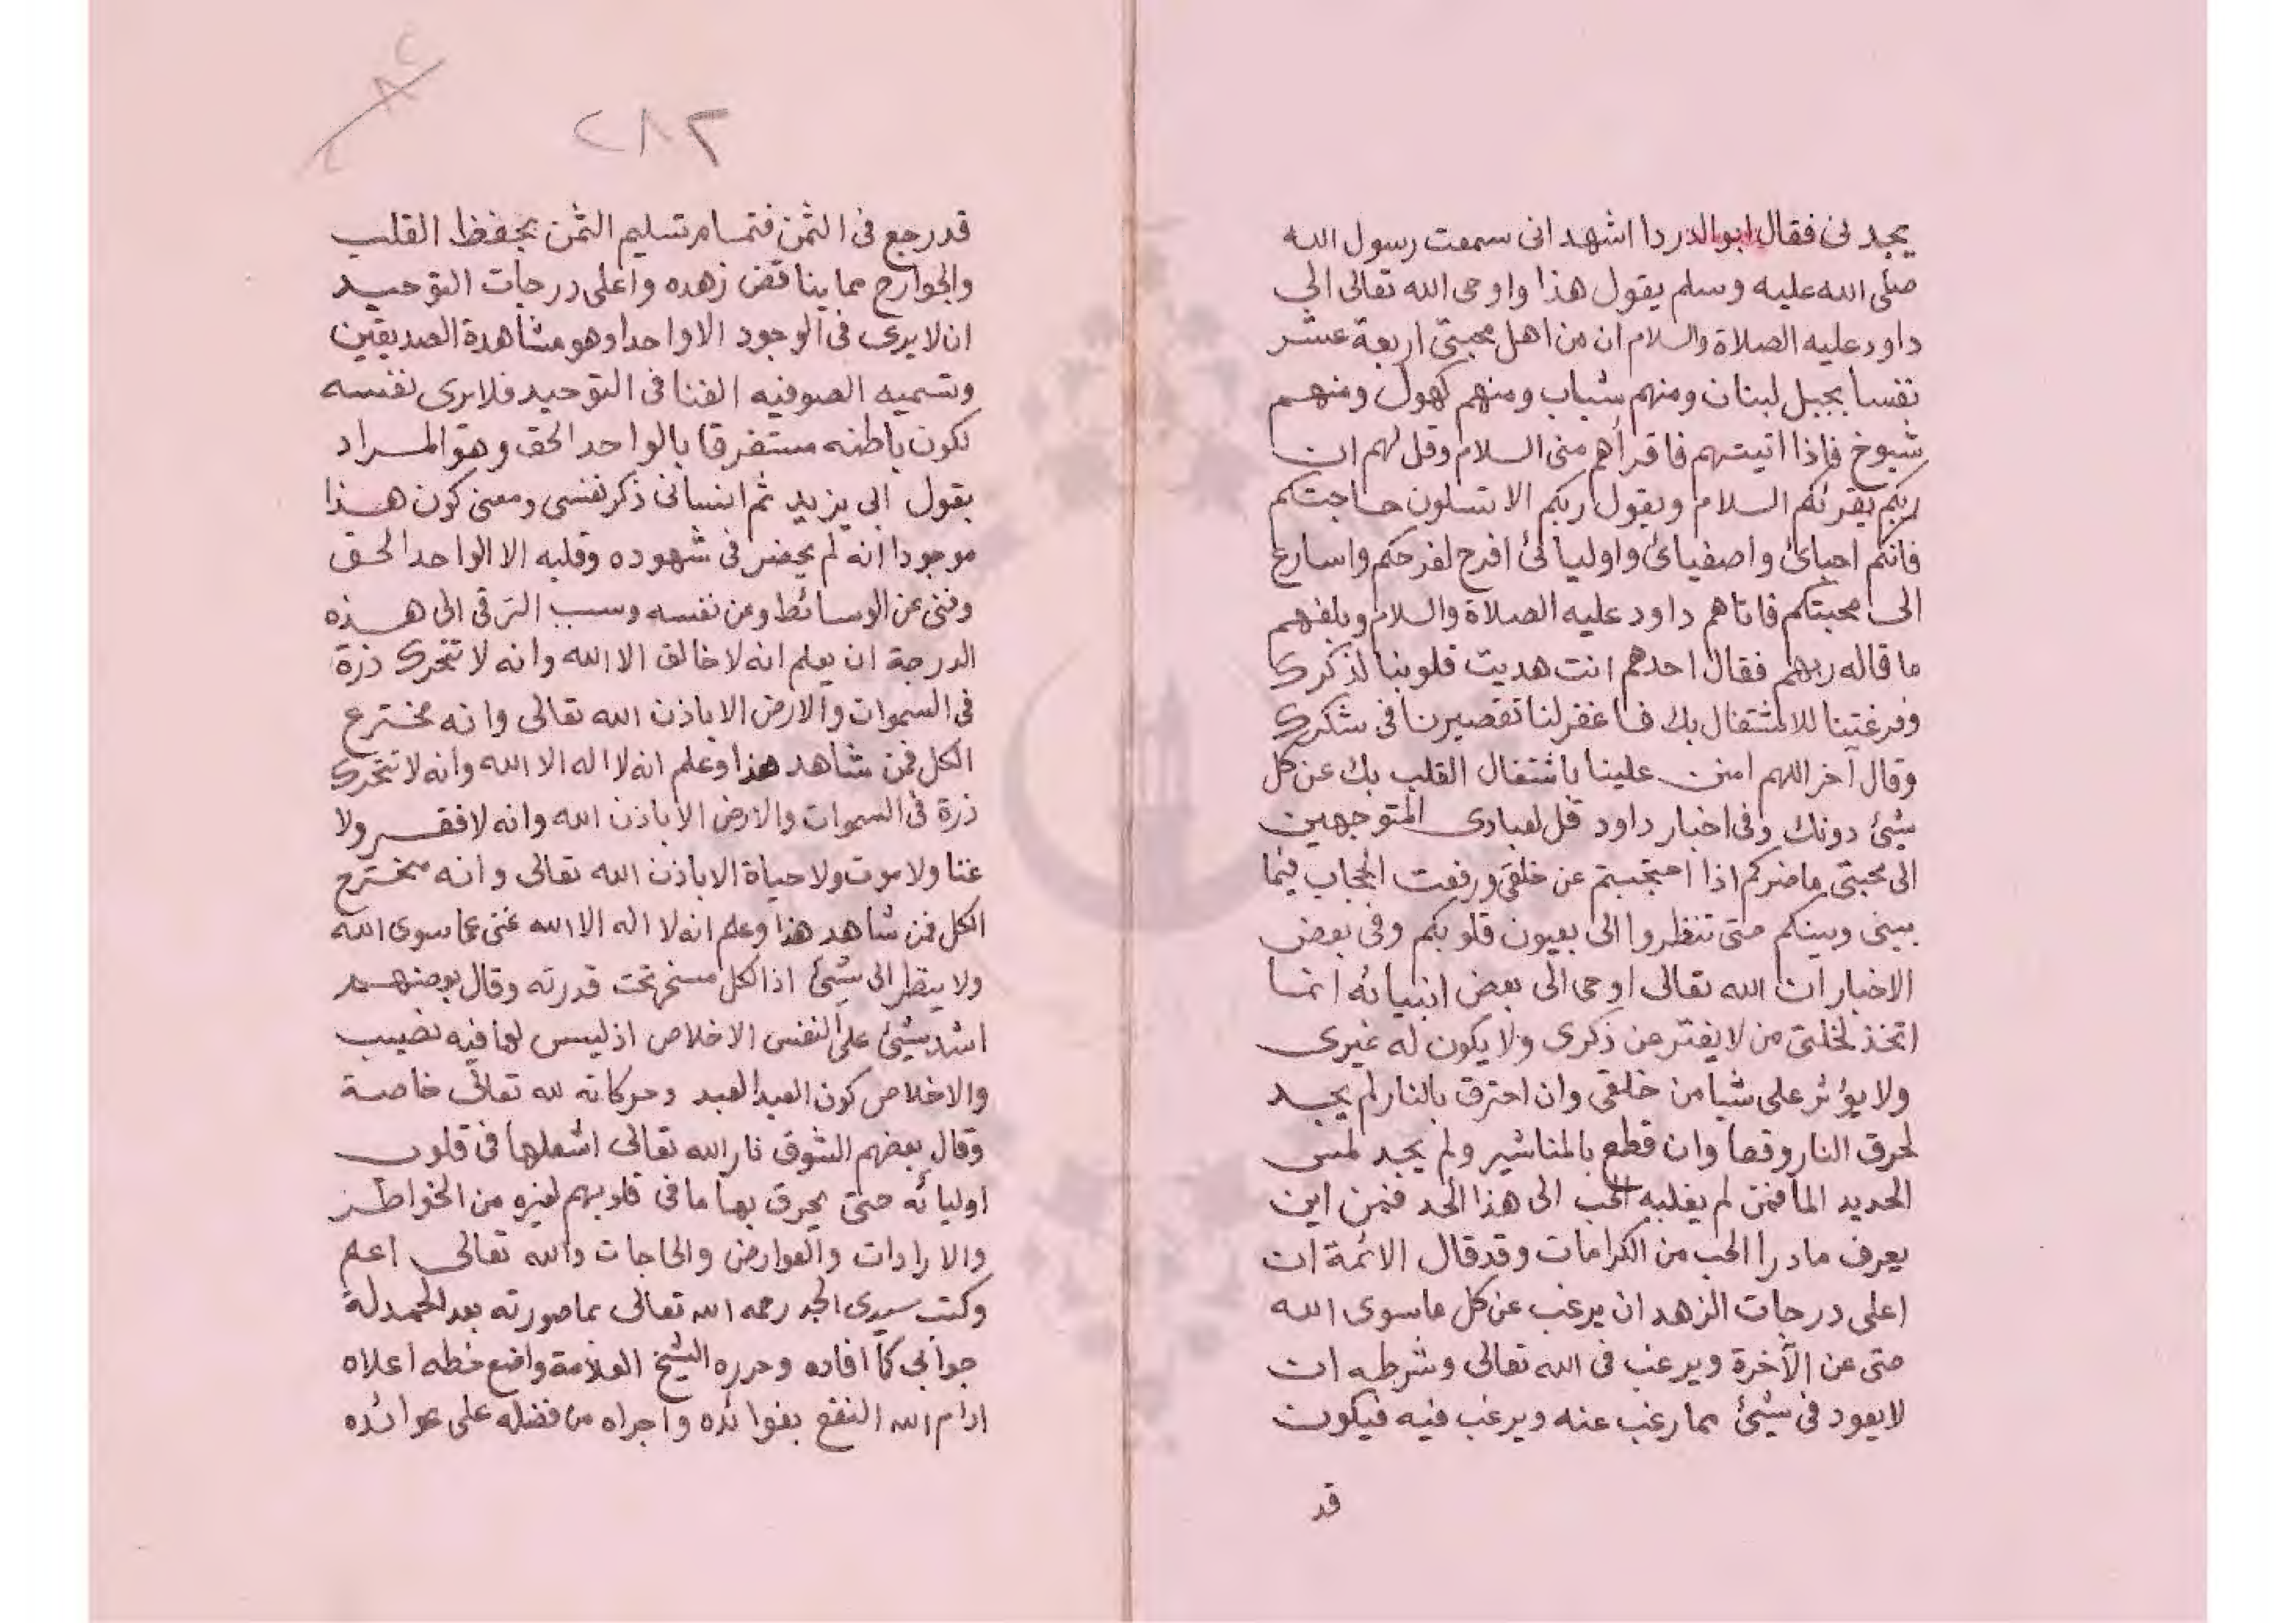 يجدنى فقال ابوالدردا اشهد انى سمعت رسول الله
صلى الله عليه وسلم يقول هذا واوحى الله تعالى الى
داود عليه الصلاة والسلام ان من اهل محبتى اربعة عشر
نفسا بجبل لبنان ومنهم شباب ومنهم كهول ومنهم
شيوخ فاذا اتيتهم فاقرأهم منى السلام وقل لهم ان
ربكم يقرئكم السلام ويقول ربكم الا تسلون حاجتكم
فانكم احبائ واصفيائ واوليائ افرح لفرحكم واسارع
الى محبتكم فاتاهم داود عليه الصلاة والسلام وبلغهم
ما قاله ربهم فقال احدهم انت هديت قلوبنا لذكرك
وفرغتنا للاشتغال بك فاغفر لنا تقصيرنا فى شكرك
وقال آخر اللهم امنن علينا باشتغال القلب بك عن كل
شيئ دونك وفى اخبار داود قل لعبادى المتوجهين
الى محبتى ماضركم اذا احتجبتم عن خلقى ورفعت الحجاب فيما
بينى وبينكم حتى تنظروا الى بعيون قلوبكم وفى بعض
الاخبار ان الله تعالى اوحى الى بعض انبيائه انما
اتخذ لخلتى من لا يفتر عن ذكرى ولا يكون له غيرى
ولا يؤثر على شيا من خلقى وان احترق بالنار لم يجد
لحرق النار وقعا وان قطع بالمناشير ولم يجد لمس
الحديد الما فمن لم يغلبه الحب الى هذا الحد فمن اين
يعرف ماورا الحب من الكرامات وقد قال الائمة ان
اعلى درجات الزهد ان يرغب عن كل ماسوى الله
حتى عن الآخرة ويرغب فى الله تعالى وشرطه ان
لا يعود فى شيئ مما رغب عنه ويرغب فيه فيكون
قد
٢٨٢
قد رجع فى الثمن فتمام تسليم الثمن بحفظ القلب
والجوارح مما يناقض زهده واعلى درجات التوحيد
ان لا يرى فى الوجود الا واحدا وهو مشاهدة الصديقين
وتسميه الصوفيه الفنا فى التوحيد فلا يرى نفسه
لكون باطنه مستغرقا بالواحد الحق وهو المراد
بقول ابى يزيد ثم انسانى ذكر نفسى ومعنى كون هذا
موجودا انه لم يحضر فى شهوده وقلبه الا الواحد الحق
وفنى عن الوسائط وعن نفسه وسبب الترقى الى هذه
الدرجة ان يعلم انه لا خالق الا الله وانه لا تتحرك ذرة
فى السموات والارض الا باذن الله تعالى وانه مخترع
الكل فمن شاهد هذا وعلم انه لا اله الا الله وانه لا تتحرك
ذرة فى السموات والارض الا باذن الله وانه لا فقر ولا
غنا ولا موت ولا حياة الا باذن الله تعالى وانه مخترع
الكل فمن شاهد هذا وعلم انه لا اله الا الله غنى عما سوى الله
ولا ينظر الى شيئ اذا لكل مسخر تحت قدرته وقال بعضهم
اشد شيئ على النفس الاخلاص اذ ليس لها فيه نصيب
والاخلاص كون العبد العبد وحركاته لله تعالى خاصة
وقال بعضهم الشوق نار الله تعالى اشعلها فى قلوب
اوليائه حتى يحرق بها ما فى قلوبهم لغيره من الخواطر
والارادات والعوارض والحاجات والله تعالى اعلم
وكتب سيدى الجد رحمه الله تعالى بما صورته بعد الحمدلة
جوابى كما افاده وحرره الشيخ العلامة واضع خطه اعلاه
ادام الله النفع بفوائده واجراه من فضله على عوائده